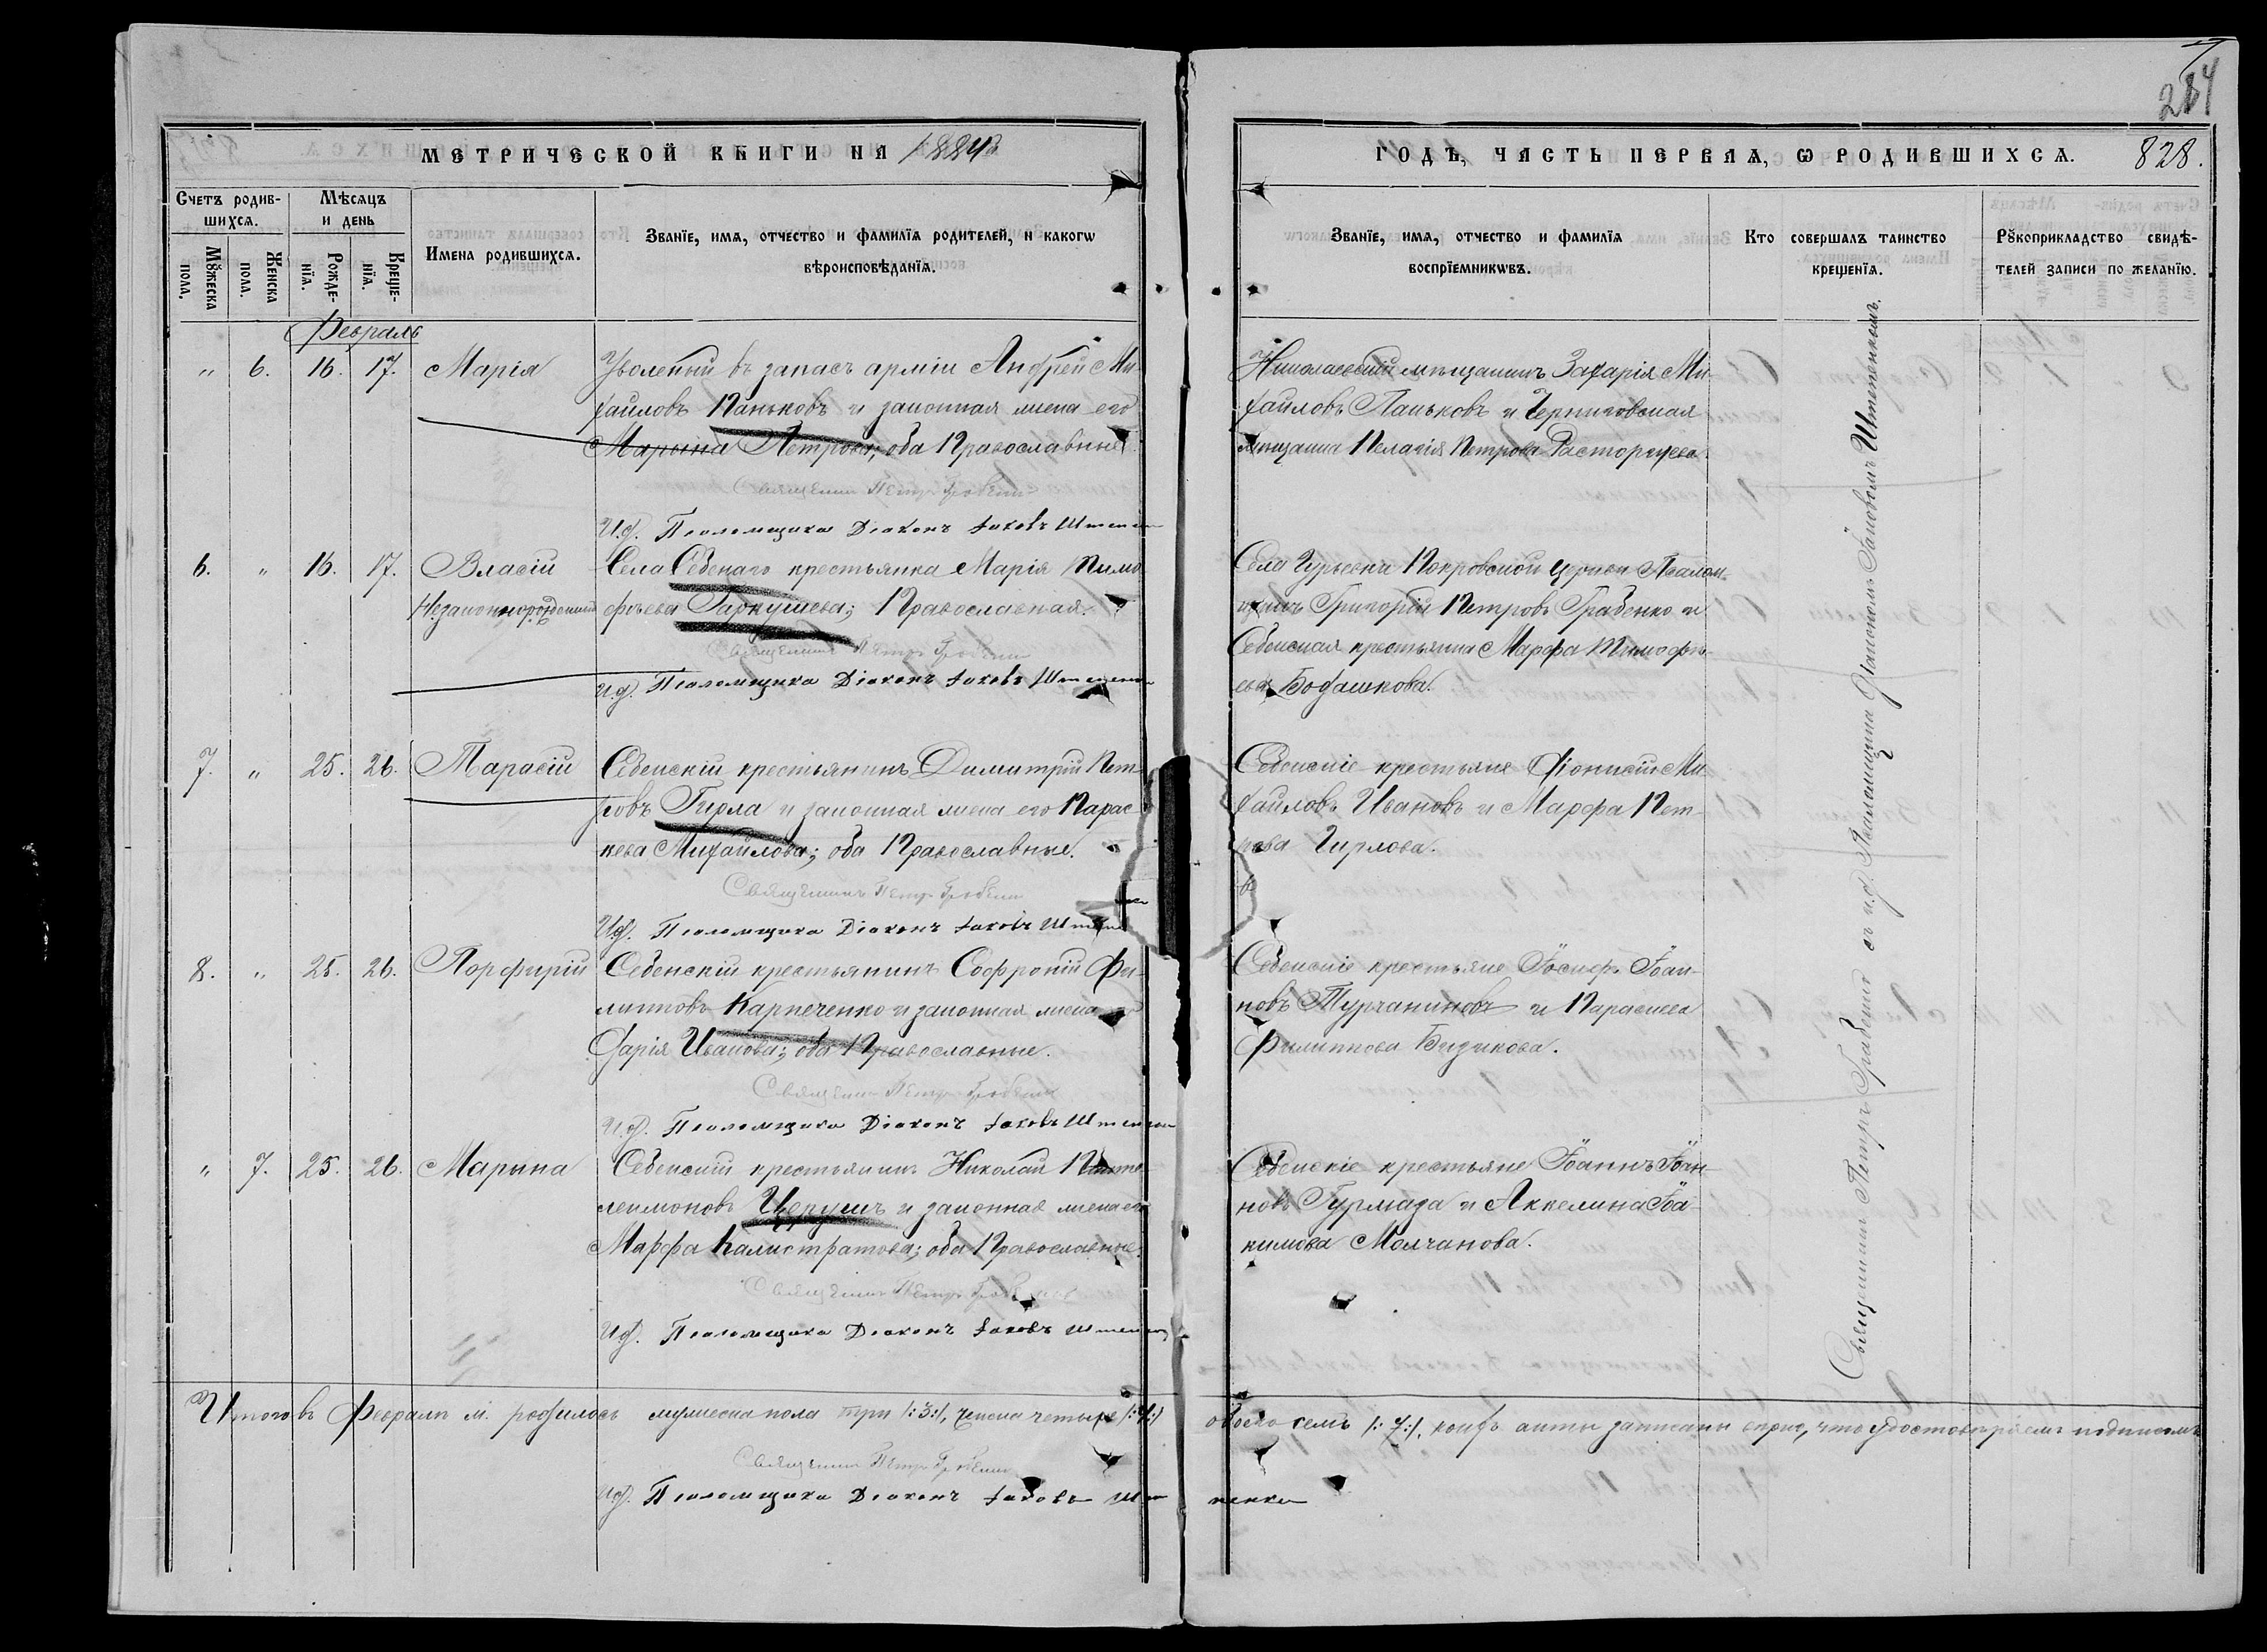 284
МЕТРИЧЕСКОЙ КНИГИ НА 1884
ГОДЪ, ЧАСТЬ ПЕРВАЯ, Ѡ РОДИВШИХСЯ. 828.
Счетъ родив-
шихся.
Мѣсяцъ
и день
Мꙋжеска
пола.
Женска
пола.
Рожде-
нїя.
Креще-
нїя.
Имена родившихся.
Званїе, имя, отчество и фамилїя родителей, и какогѡ
вѣроисповѣданїя.
Званїе, имя, отчество и фамилїя
воспрїемникѡвъ.
Кто совершалъ таинство
крещенїя.
Рꙋкоприкладство свидѣ-
телей записи по желанїю.
Февраль
" 6. 16. 17. Марія
Уволеный въ запасъ арміи Андрей Ми-
хайловъ Паньковъ и законная жена его
Марына Петрова; оба Православные.
Священникъ Петръ Грабенко
И.д. Псаломщика Діаконъ Іаковъ
Николаевскій мѣщанинъ Захарія Ми-
хайловъ Паньковъ и Черниговская
мѣщанка Пелагія Петрова Расторгуева.
6. " 16. 17. Власій
Незаконнорожденный
Села Себенаго крестьянка Марія Тимо-
фѣева Гаркушева; Православная.
Священникъ Петръ Грабенко
И.д. Псаломщика Діаконъ Іаковъ
Села Гурьевки Покровской церкви Псалом-
щикъ Григорій Петровъ Грабенко и
Себенская крестьянка Марфа Тимофѣ-
ева Бодашкова.
7. " 25. 26. Тарасій
Себенскій крестьянинъ Димитрій Пет-
ровъ Гирла и законная жена его Парас-
кева Михайлова; оба Православные.
Священникъ Петръ Грабенко
И.д. Псаломщика Діаконъ Іаковъ
Себенскіе крестьяне Діонисій Ми-
хайловъ Ивановъ и Марфа Пет-
рова Гирлова.
8. " 25. 26. Порфирій
Себенскій крестьянинъ Софроній Фи-
липповъ Карпеченко и законная жена его
Дарія Иванова; оба Православные.
Священникъ Петръ Грабенко
И.д. Псаломщика Діаконъ Іаковъ
Себенскіе крестьяне Іосифъ Іоан-
новъ Турчаниновъ и Параскева
Филиппова Бизикова.
" 7. 25. 26. Марина
Себенскій крестьянинъ Николай Панте-
леимоновъ Церушъ и законная жена его
Марфа Калистратова; оба Православные.
Священникъ Петръ Грабенко
И.д. Псаломщика Діаконъ Іаковъ
Себенскіе крестьяне Іоаннъ Іоан-
новъ Гурмаза и Аккелина Іоа-
кимова Молчанова.
Священникъ Петръ Грабенко съ и.д. Псаломщика Діакономъ Іаковомъ Штепенкомъ.
Итого въ Февралѣ м. родилось мужеска пола три /:3:/, женска четыре /:4:/ обоего семь /:7:/, коихъ акты записаны вѣрно, что удостовѣряемъ подписомъ
Священникъ Петръ Грабенко
И.д. Псаломщика Діаконъ Іаковъ Штепенко